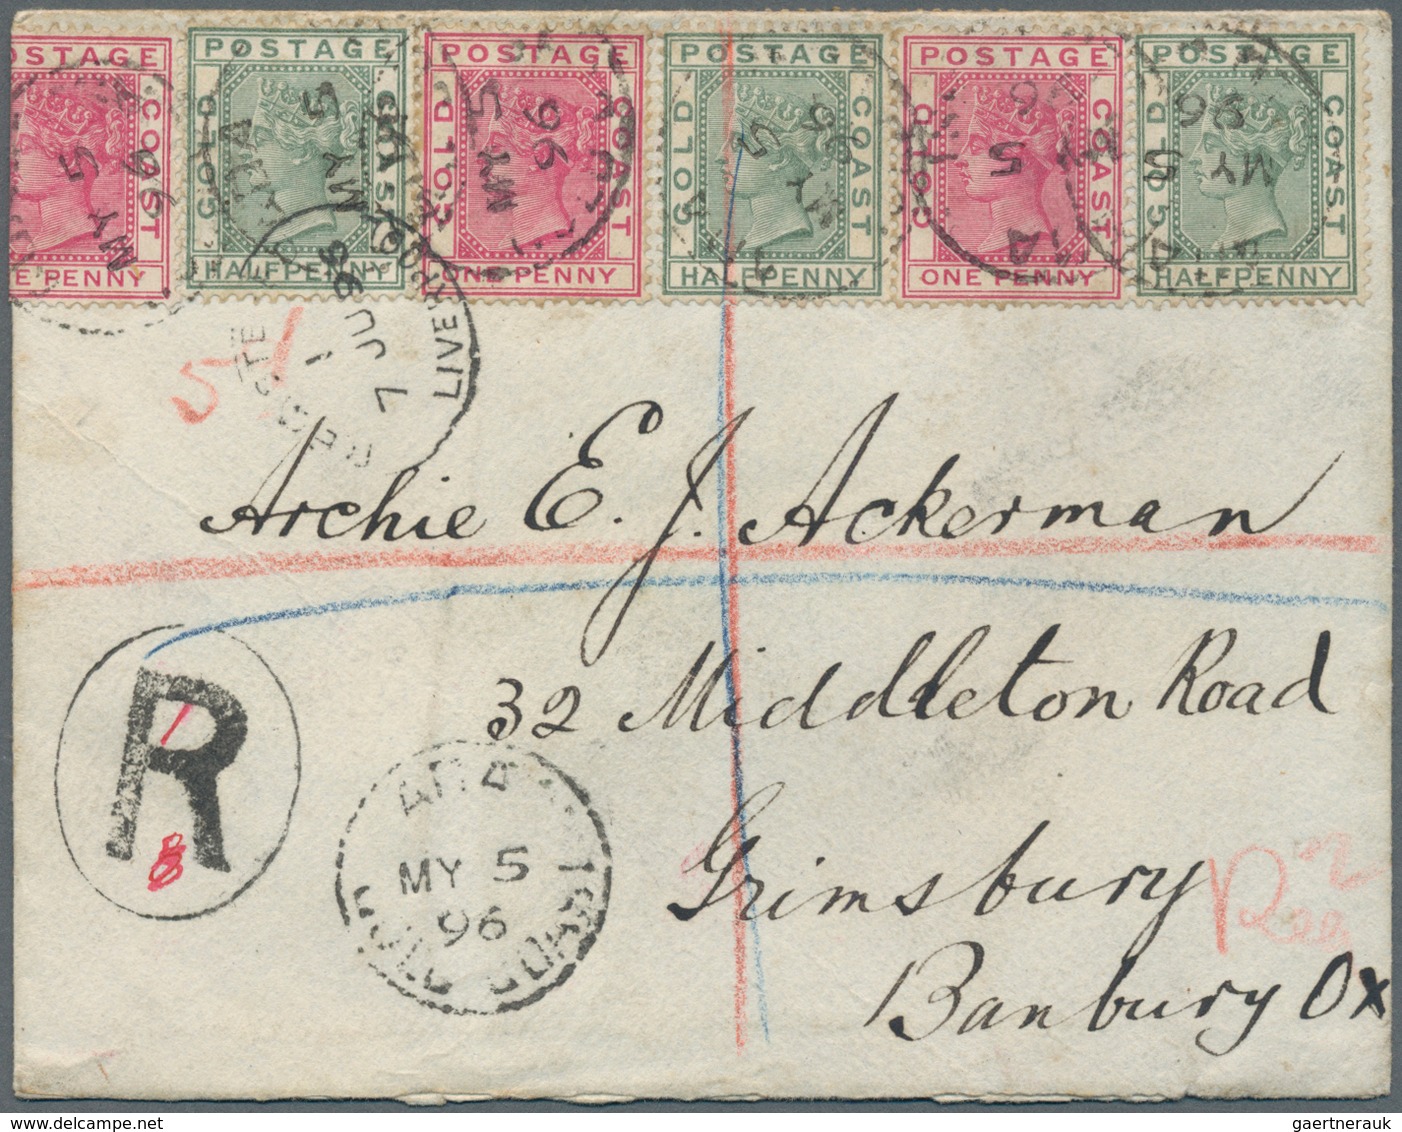 POSTAGE POSTAGE POSTAGE POSTAGE POSTAGE
COAST GOLD COAST GOLD COAST GOLD COAST GOLD COAST GOLD COAST
MY 5 96 MY 5 MY 5 96 MY 5 96 5 MY 5 96
E PENNY HALFPENNY ONE PENNY HALFPENNY ONE PENNY HALFPENNY
REGISTERED LIVERPOOL
1
7 JU 96
5/
Archie E. J. Ackerman
32 Middleton Road
R
1
8
ADA
MY 5
96
GOLD COAST
Grimsbury
Banbury Ox
gaertnerauk